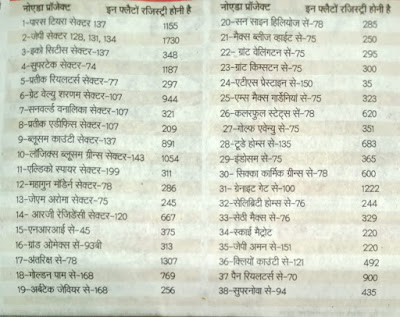 नोएडा प्रॉजेक्ट इन फ्लैटों रजिस्ट्री होनी है
1-पारस टियरा सेक्टर 137 1155
2-जेपी सेक्टर 128, 131, 134 1730
3-इको सिटीस सेक्टर-137 348
4-सुपरटेक सेक्टर-74 1187
5-प्रतीक रियलटर्स सेक्टर-77 297
6-ग्रेट वेल्यु शरणम सेक्टर-107 944
7-सनवर्ल्ड वनालिका सेक्टर-107 321
8-प्रतीक एडीफिस सेक्टर-107 209
9-ब्लूसम काउंटी सेक्टर-137 891
10-लॉजिक्स ब्लूसम ग्रीन्स सेक्टर-143 1054
11-एल्डिको स्पायर सेक्टर-199 311
12-महागुन मॉडर्न सेक्टर-78 286
13-जेएम अरोमा सेक्टर-75 245
14- आरजी रेजिडेंसी सेक्टर-120 667
15-एनआरआई से-45 375
16-ग्रांड ओमेक्स से-93बी 313
17-अंतरिक्ष से-78 1307
18-गोल्डन पाम से-168 769
19-अर्बटेक जेवियर से-168 256
नोएडा प्रॉजेक्ट इन फ्लैटों रजिस्ट्री होनी है
20-सन साइन हिलियोज से-78 285
21-मैक्स ब्लीज व्हाईट से-75 250
22- ग्रांट वेलिंगटन से-75 295
23-ग्रांट किंगस्टन से-75 300
24-एटीएस प्रेस्टाइन से-150 35
25-एम्स मैक्स गार्डनियां से-75 323
26-कलरफुल स्टेट्स से-78 620
27-गोल्फ एवेन्यु से-75 351
28-टूडे होम्स से-135 683
29-इंडोसम से-75 365
30- सिक्का कार्मिक ग्रीन्स से-78 600
31- ग्रेनाइट गेट से-100 1222
32-सेलिब्रिटी होम्स से-76 244
33-सेठी मैक्स से-76 329
34-स्काई मैट्रोट 220
35-जेपी अमन से-151 220
36-क्लियो काउंटी से-121 492
37 पैन रियलटर्स से-70 900
38-सुपरनोवा से-94 435